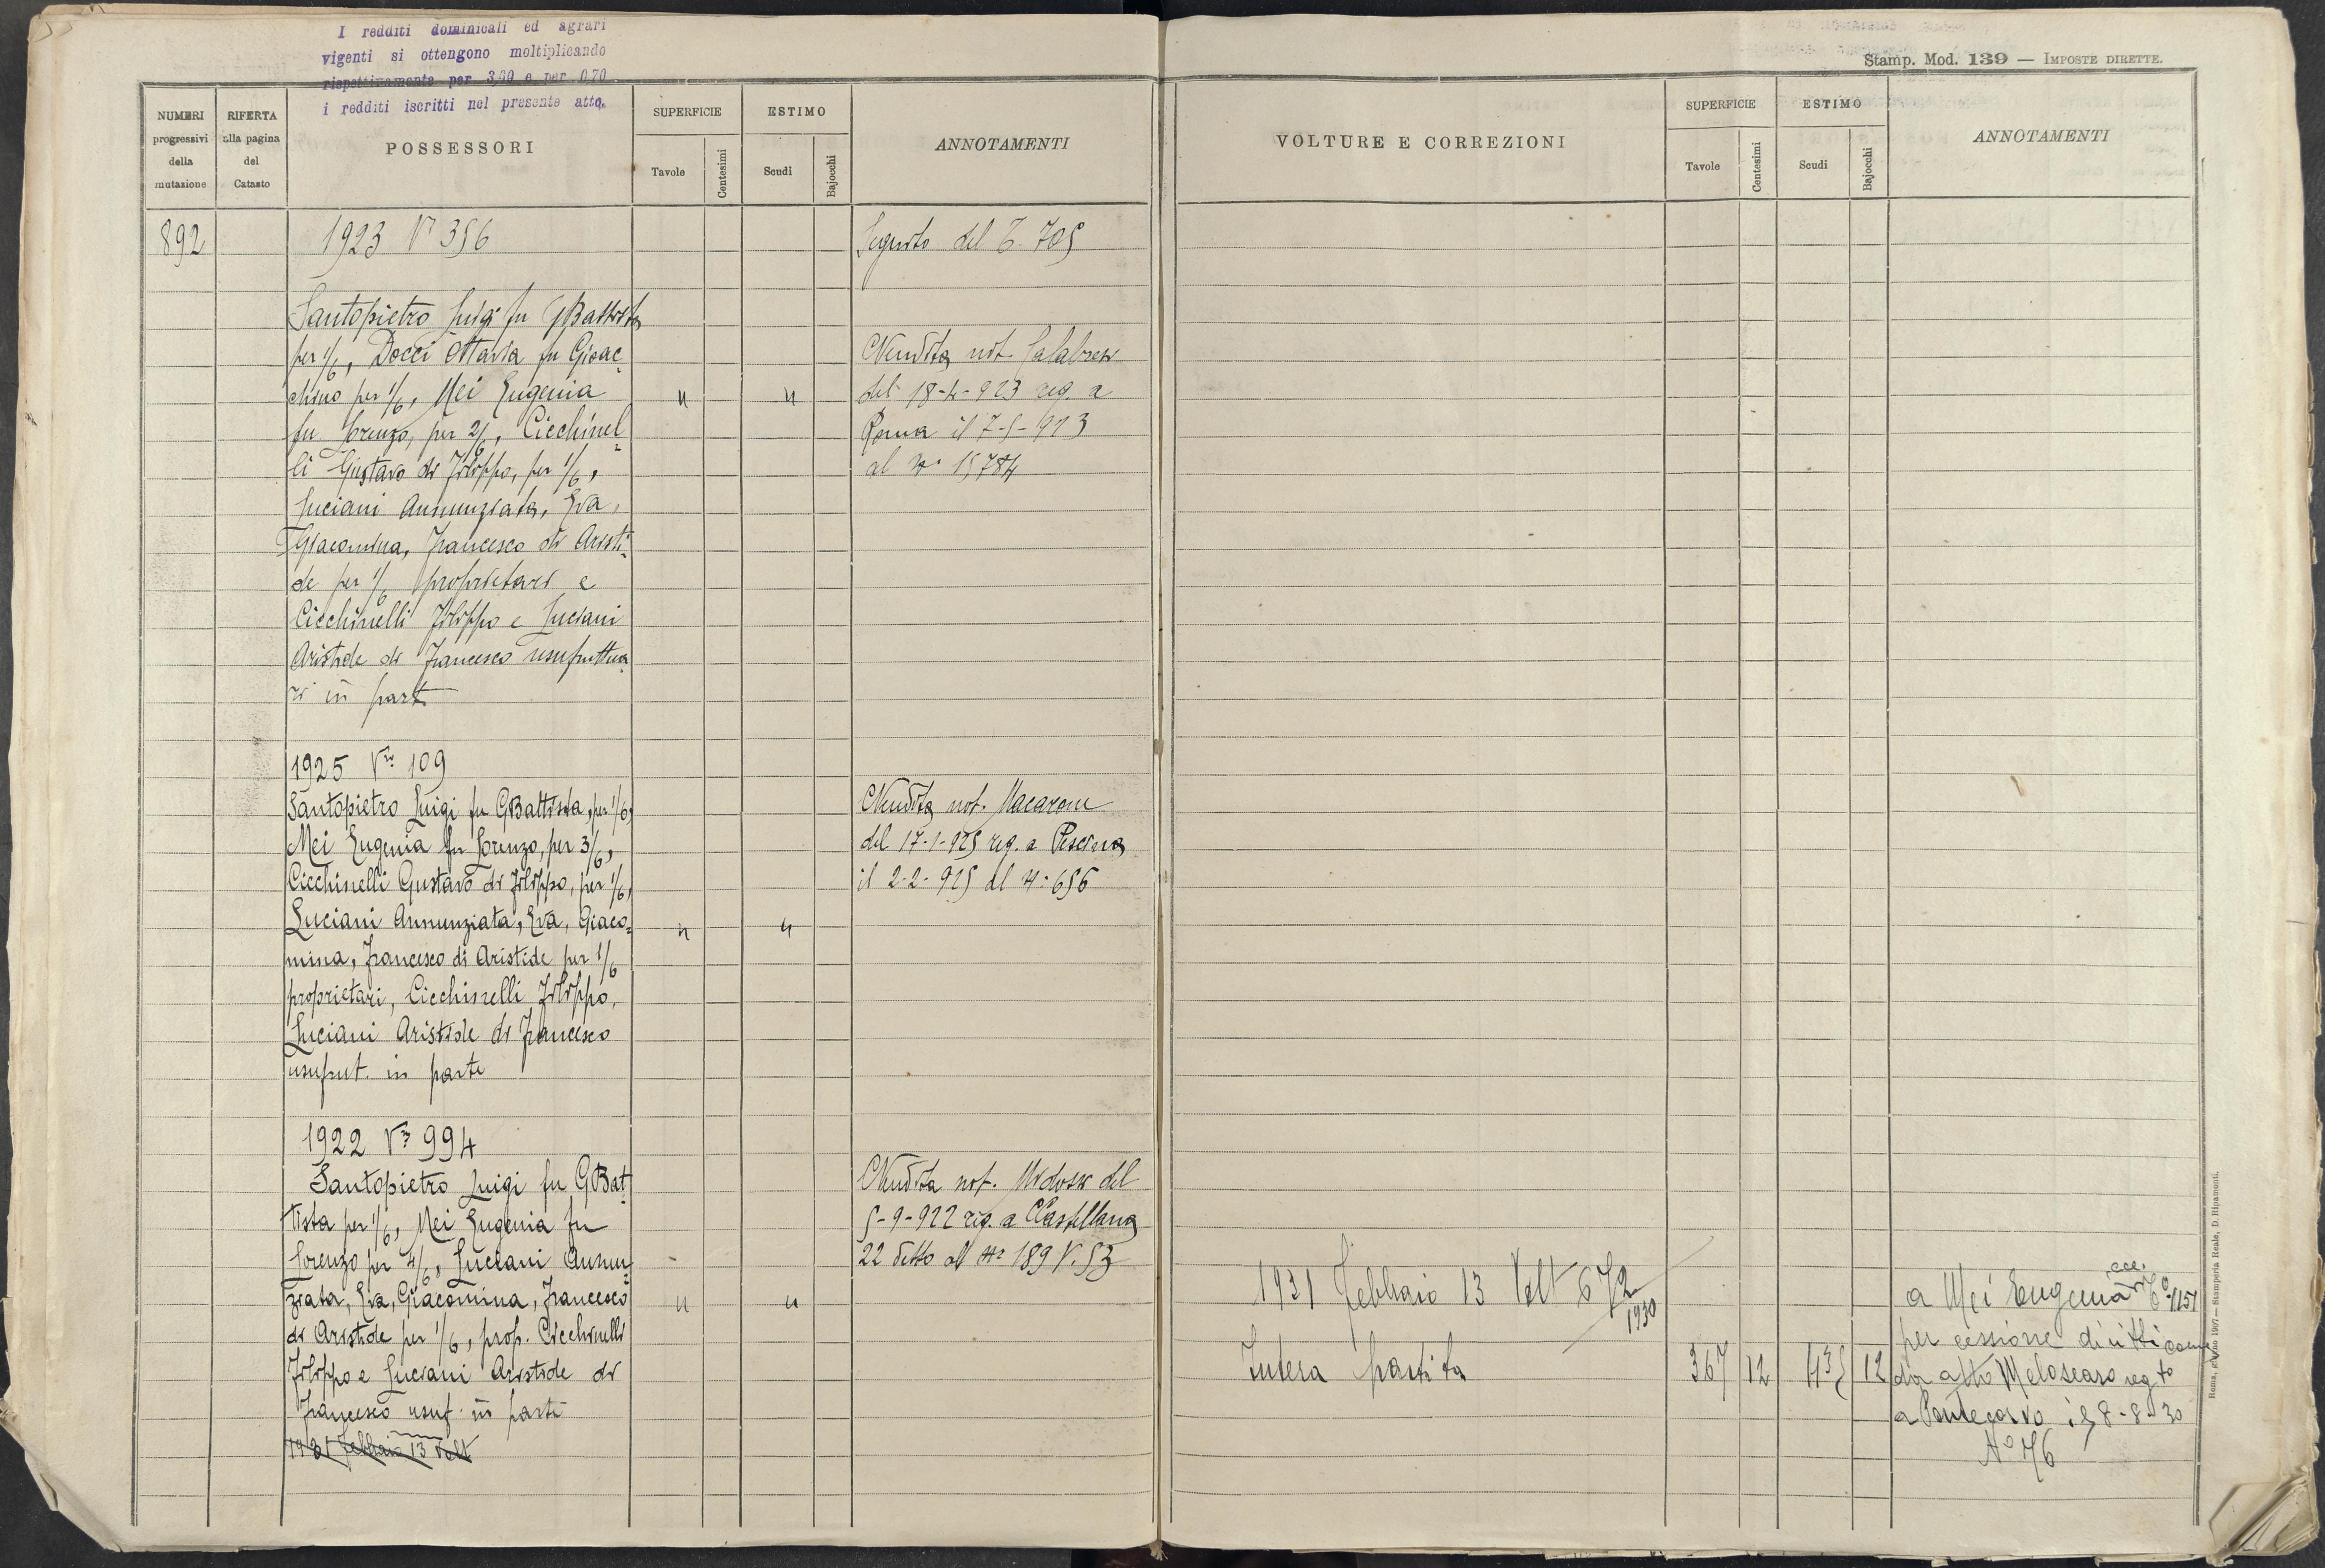 I redditi dominicali ed agrari
vigenti si ottengono moltiplicando
rispettivamente per 3,00 e per 0,70
i redditi iscritti nel presente atto.
NUMERI progressivi della mutazione
RIFERTA alla pagina del Catasto
POSSESSORI
SUPERFICIE
Tavole
Centesimi
ESTIMO
Scudi
Bajocchi
ANNOTAMENTI
892
1923 Vª 356
Santopietro Luigi fu GBattista
per 1/6, Docci Ottavia fu Gioac
chino per 1/6, Mei Eugenia
fu Lorenzo, per 2/6, Cicchinel
li Gustavo di Filippo, per 1/6,
Luciani Annunziata, Eva,
Giacomina, Francesco di Aristi
de per 1/6 proprietari e
Cicchinelli Filippo e Luciani
Aristide di Francesco usufruttua
ri in part
Seguito del 6. 705
Vendita not. Calabresi
del 18-4-923 reg. a
Roma il 7-5-923
al Nº 15784
1925 Vª 109
Santopietro Luigi fu GBattista, per 1/6,
Mei Eugenia fu Lorenzo, per 3/6,
Cicchinelli Gustavo di Filippo, per 1/6,
Luciani Annunziata, Eva, Giaco=
mina, Francesco di Aristide per 1/6
proprietari, Cicchinelli Filippo,
Luciani Aristide di Francesco
usufrut. in parte
Vendita not. Macarone
del 17-1-925 reg. a Pescina
il 2-2-925 al N: 656
1922 Vª 994
Santopietro Luigi fu GBat
tista per 1/6, Mei Eugenia fu
Lorenzo per 4/6, Luciani Annun
ziata, Eva, Giacomina, Francesco
di Aristide per 1/6, prop. Cicchinelli
Filippo e Luciani Aristide di
Francesco usuf. in parte
1931 Febbraio 13 Volt
Vendita not. del
5-9-922 reg. a CCastellana
22 detto al Nº 189 V. 53
Stamp. Mod. 139 — IMPOSTE DIRETTE.
VOLTURE E CORREZIONI
SUPERFICIE
Tavole
Centesimi
ESTIMO
Scudi
Bajocchi
ANNOTAMENTI
1931 Febbraio 13 Volt 672
1930
Intera partita 367 12 435 12
a Mei Eugenia ecc. 1151
per cessione diritti come
da atto Meloscaro regto
a Pontecorvo il 8-8-30
Nº 76
Roma, giugno 1907. — Stamperia Reale, D. Ripamonti.